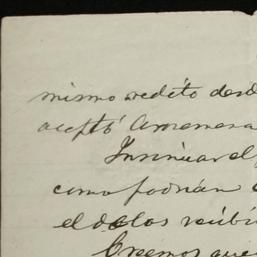 mismo credito desd
aceptó
Insinuar el
como podrian
el de los recibi
Creemos que